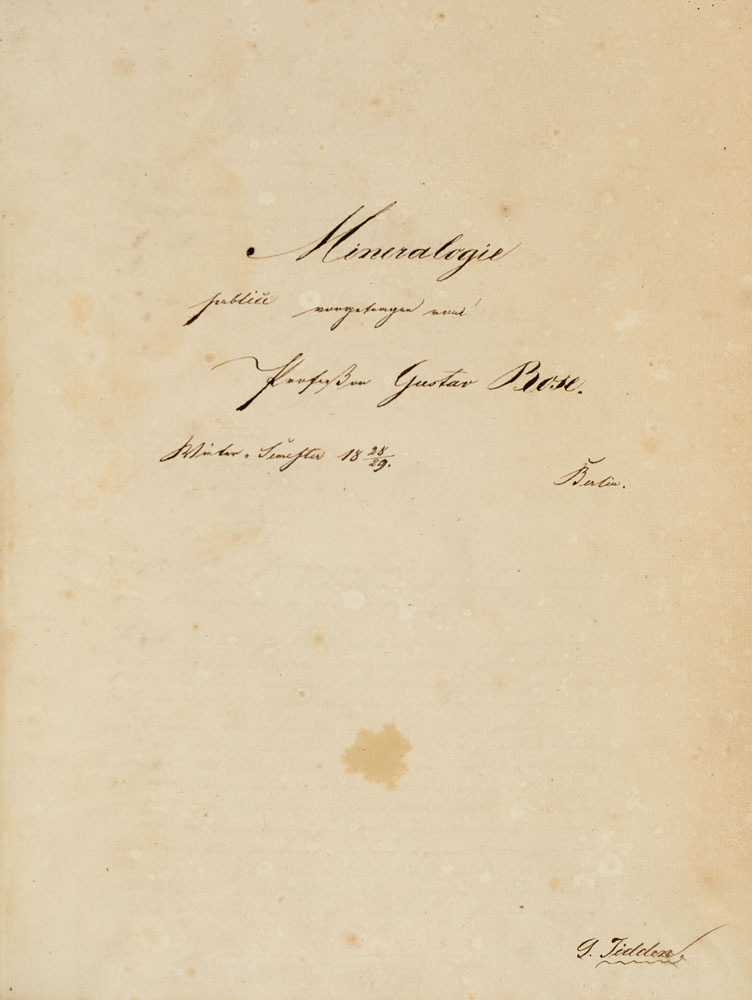 Mineralogie
publice vorgetragen vom
Professor Gustav Rose.
Winter-Semester 18 28/29.
Berlin.
G. Tidden.